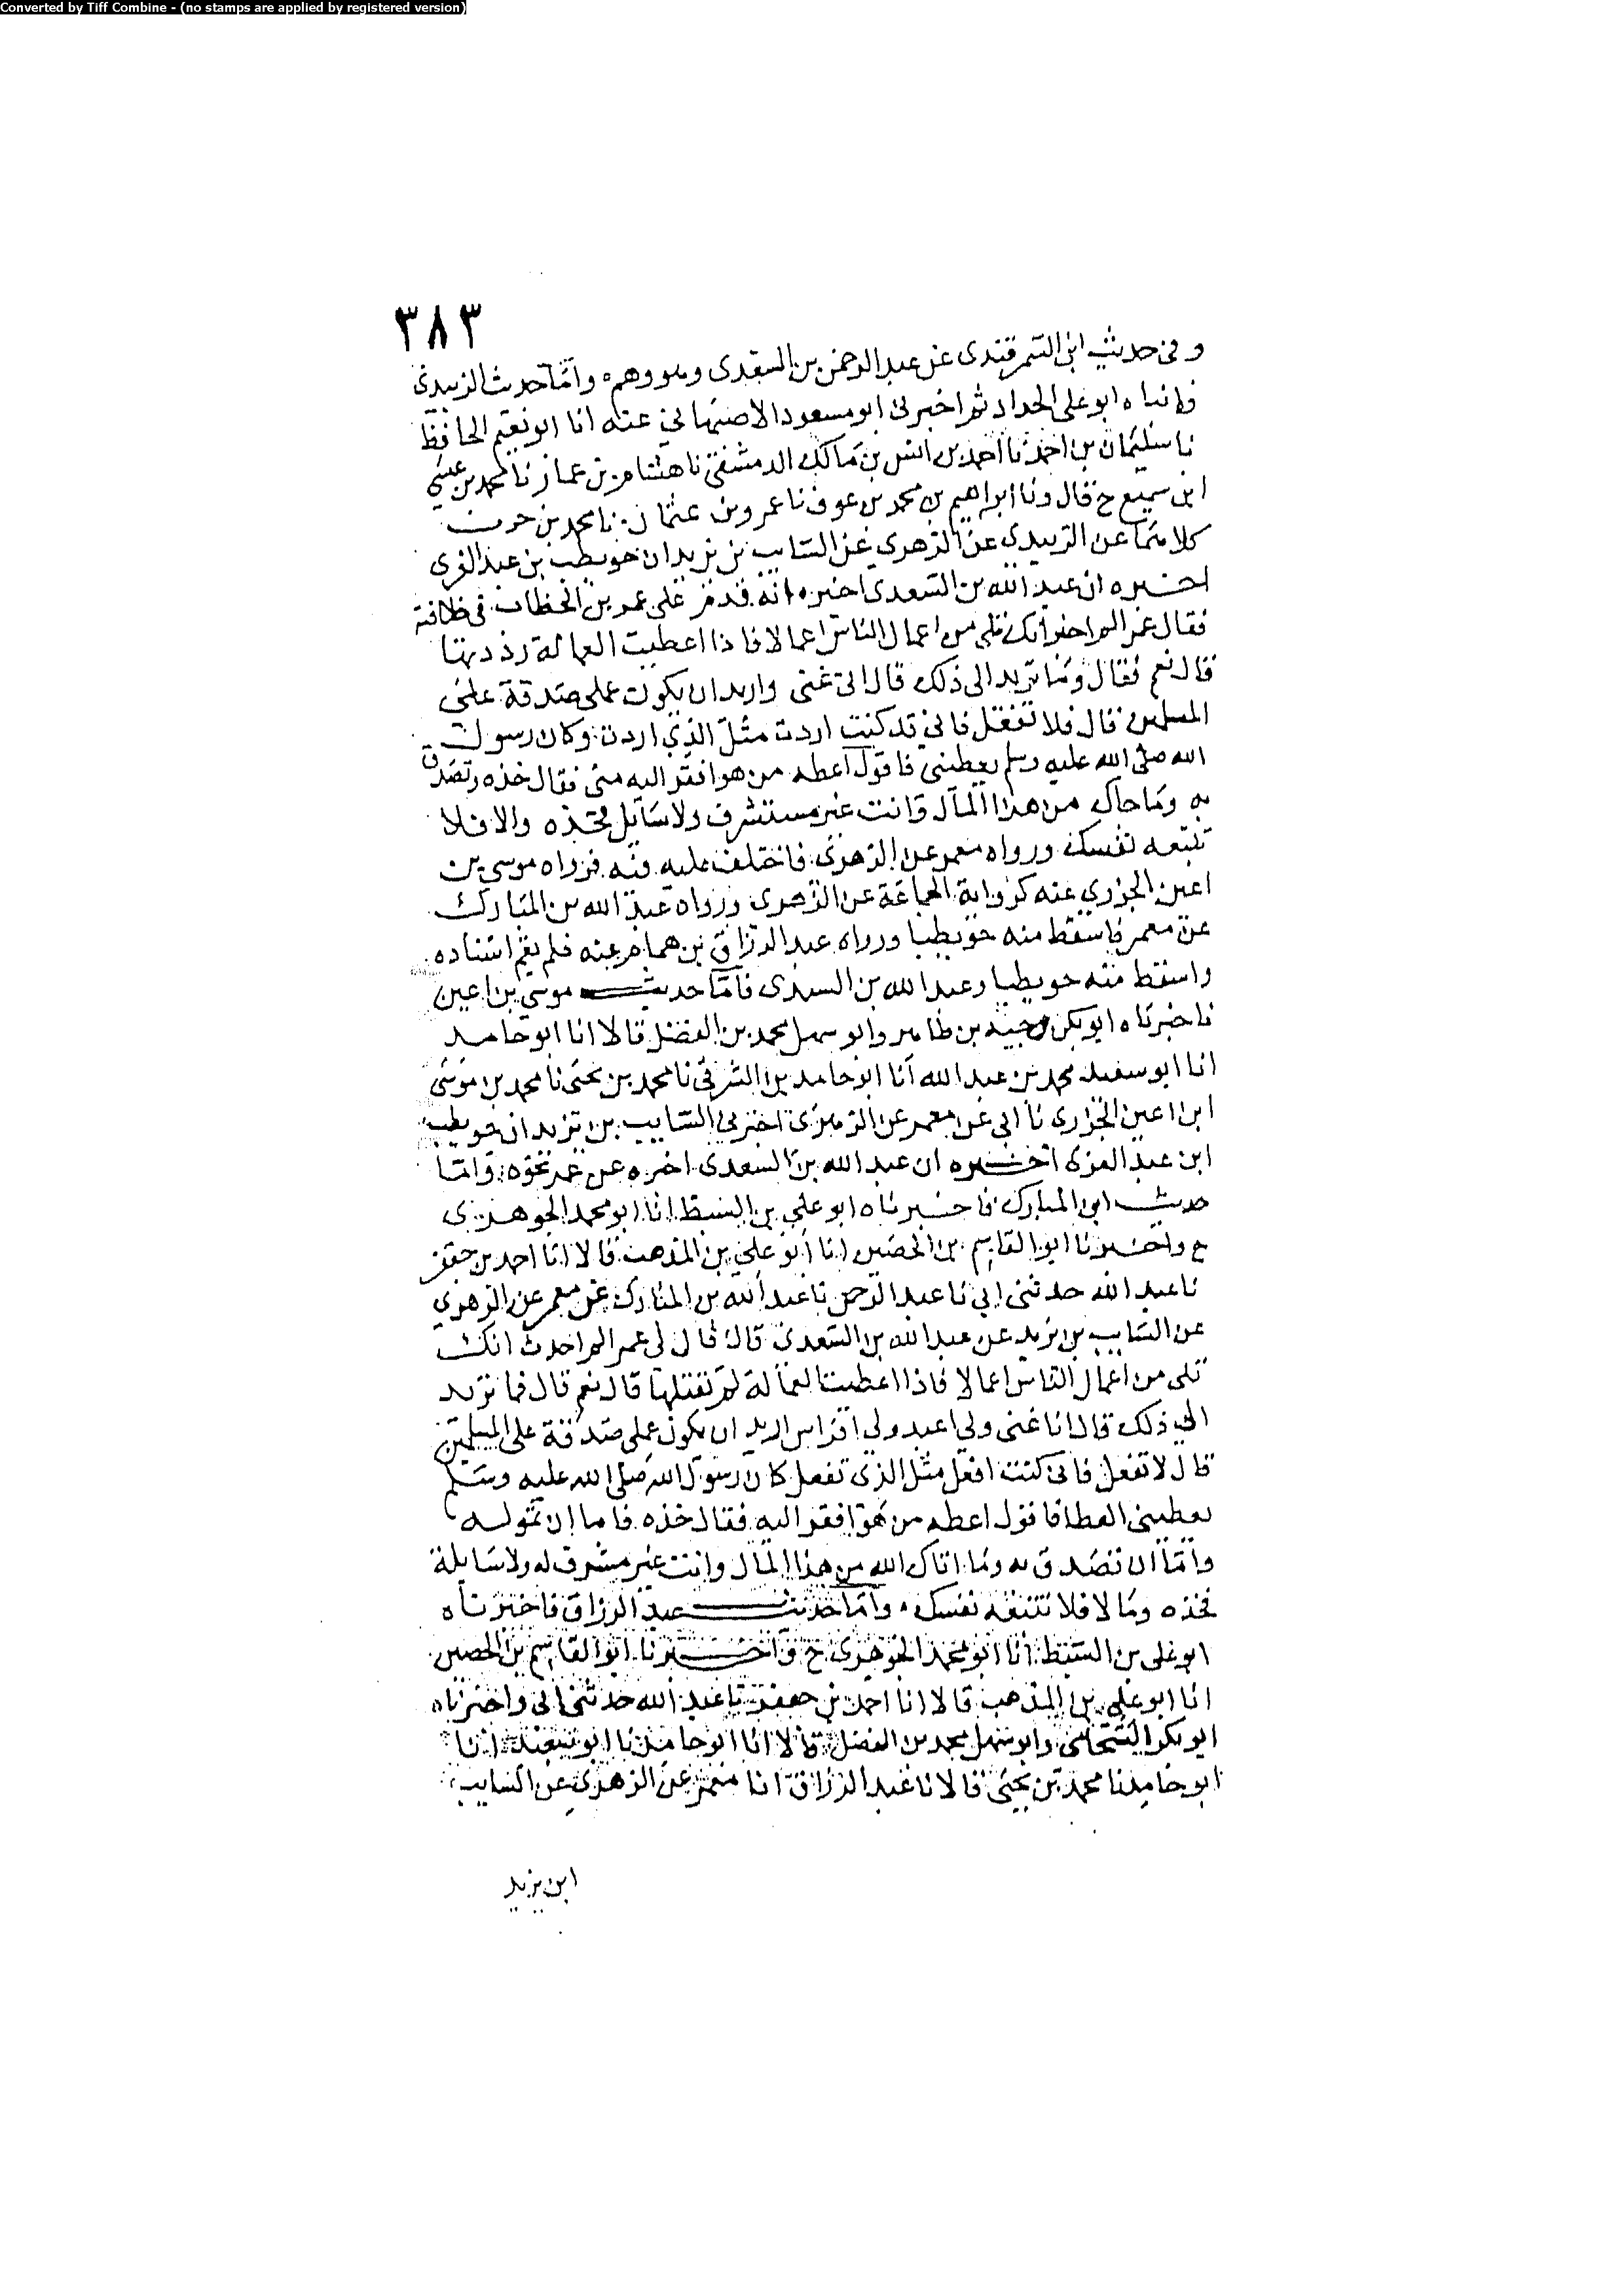 Converted by Tiff Combine - (no stamps are applied by registered version)
٣٨٣
وفي حديث ابن السمرقندي عن عبد الرحمن بن السعدي وهو وهم واما حديث الزبيدي
فانباه ابو علي الحداد ثم اخبرني ابو مسعود الاصبهاني عنه انا ابو نعيم الحافظ
نا سليمان بن احمد نا احمد بن انس بن مالك الدمشقي نا هشام بن عمار نا محمد بن عيسى
ابن سميع ح قال ونا ابراهيم بن محمد بن عوف نا عمرو بن عثمان نا محمد بن حرب
كلاهما عن الزبيدي عن الزهري عن السايب بن يزيد ان حويطب بن عبد العزى
اخبره ان عبد الله بن السعدي اخبره انه قدم على عمر بن الخطاب في خلافته
فقال عمر الم احدث انك تلي من اعمال الناس اعمالا فاذا اعطيت العمالة رددتها
قال نعم فقال وما تريد الى ذلك قال اني غني واريد ان يكون عملي صدقة على
المسلمين قال فلا تفعل فاني قد كنت اردت مثل الذي اردت وكان رسول
الله صلى الله عليه وسلم يعطيني فاقول اعطه من هو افقر اليه مني فقال خذه وتصدق
به وما جاك من هذا المال وانت غير مستشرف ولا سايل فخذه والا فلا
تتبعه نفسك ورواه معمر عن الزهري فاختلف عليه فيه فرواه موسى بن
اعين الجزري عنه كرواية الجماعة عن الزهري ورواه عبد الله بن المبارك
عن معمر فاسقط منه حويطبا ورواه عبد الرزاق بن همام عنه فلم يقم اسناده
واسقط منه حويطبا وعبد الله بن السعدي فاما حديث موسى بن اعين
فاخبرناه ابو بكر وجيه بن طاهر وابو سهل محمد بن الفضل قالا انا ابو حامد
انا ابو سعيد محمد بن عبد الله انا ابو حامد بن الشرقي نا محمد بن يحيى نا محمد بن موسى
ابن اعين الجزري نا ابي عن معمر عن الزهري اخبرني السايب بن يزيد ان حويطب
ابن عبد العزى اخبره ان عبد الله بن السعدي اخبره عن عمر نحوه واما
حديث ابن المبارك فاخبرناه ابو علي بن السبط انا ابو محمد الجوهري
ح واخبرنا ابو القاسم بن الحصين انا ابو علي بن المذهب قالا انا احمد بن جعفر
نا عبد الله حدثني ابي نا عبد الرحمن نا عبد الله بن المبارك عن معمر عن الزهري
عن السايب بن يزيد عن عبد الله بن السعدي قال قال لي عمر الم احدث انك
تلي من اعمال الناس اعمالا فاذا اعطيت العمالة لم تقبلها قال نعم قال فما تريد
الى ذلك قال انا غني ولي اعبد ولي افراس اريد ان يكون عملي صدقة على المسلمين
قال لا تفعل فاني كنت افعل مثل الذي تفعل كان رسول الله صلى الله عليه وسلم
يعطيني العطا فاقول اعطه من هو افقر اليه فقال خذه فاما ان تموله
واما ان تصدق به وما اتاك الله من هذا المال وانت غير مشرف له ولا سايله
فخذه وما لا فلا تتبعه نفسك واما حديث عبد الرزاق فاخبرناه
ابو علي بن السبط انا ابو محمد الجوهري ح واخبرنا ابو القاسم بن الحصين
انا ابو علي بن المذهب قالا انا احمد بن جعفر نا عبد الله حدثني ابي واخبرناه
ابو بكر الشحامي وابو سهل محمد بن الفضل قالا انا ابو حامد نا ابو سعيد انا
ابو حامد نا محمد بن يحيى قالا نا عبد الرزاق انا معمر عن الزهري عن السايب
ابن يزيد